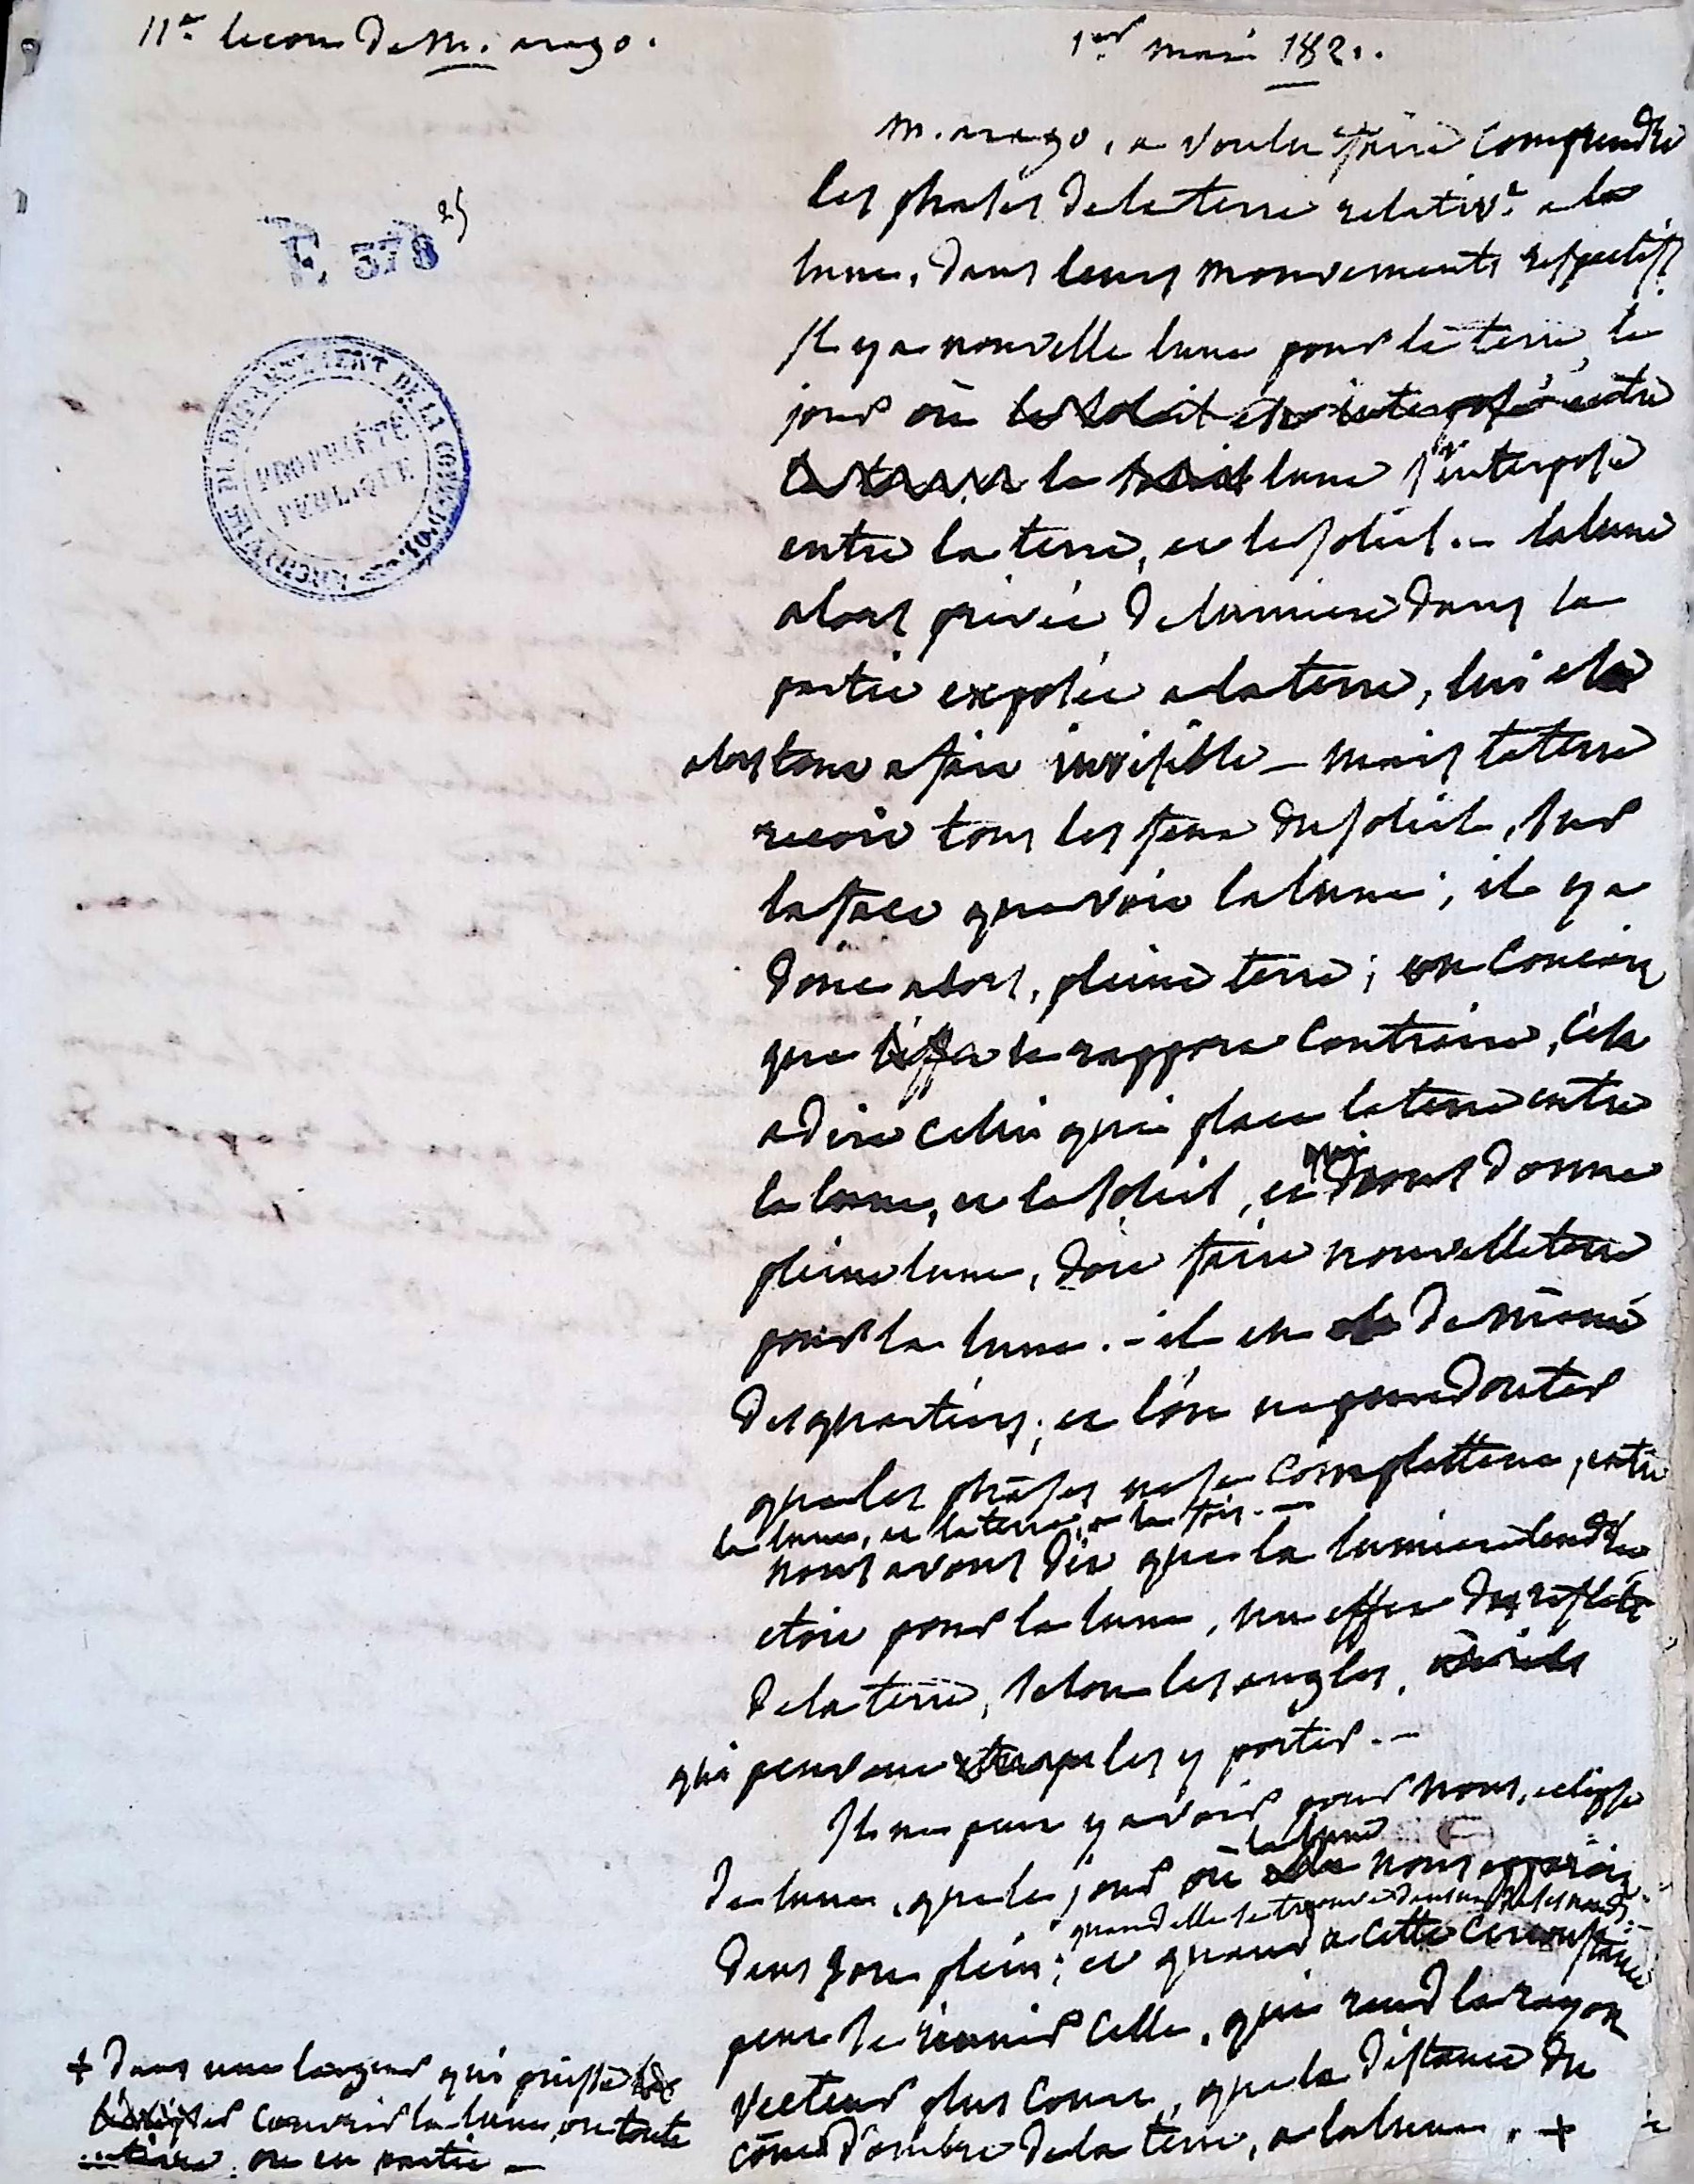 11e lecon de M. arago.
1er mai 1821.
E 378 25
ARCHIVES DU DEPARTEMENT DE LA CÔTE-D'OR
PROPRIÉTÉ PUBLIQUE
M. arago, a voulu faire comprendre
les phases de la terre relativt a la
lune, dans leurs mouvements respectifs.
Il y a nouvelle lune pour la terre, le
jour où le soleil est interposé entre
la lune s'interpose
entre la terre, et le soleil. - la lune
alors privée de lumiere dans la
partie exposée a la terre, lui est
alors tout a fait invisible - mais la terre
recoit tous les feux du soleil, sur
la face que voit la lune ; il y a
donc alors, pleine terre ; on concoit
que l'effet le rapport contraire, c'est
a dire celui qui place la terre entre
la lune, et le soleil, et qui nous donne
pleine lune, doit faire nouvelle terre
pour la lune. - il en est de même
des quartiers ; et l'on ne peut douter
que les phases ne se complettent, entre
la lune, et la terre, a la fois. -
nous avons dit que la lumiere cendrée
etoit pour la lune, un effet des reflets
de la terre, selon les angles,
qui peuvent les y porter. -
Il ne peut y avoir pour nous, eclipse
de lune, que le jour où la lune nous apparoit
quand elle se trouve dans un de ses nœuds -
dans son plein ; et quand a cette circonstance
peut se reunir celle, qui rend le rayon
vecteur plus court, que la distance du
cône d'ombre de la terre, a la lune. +
+ dans une largeur qui puisse
couvrir la lune, ou toute
entiere, ou en partie -